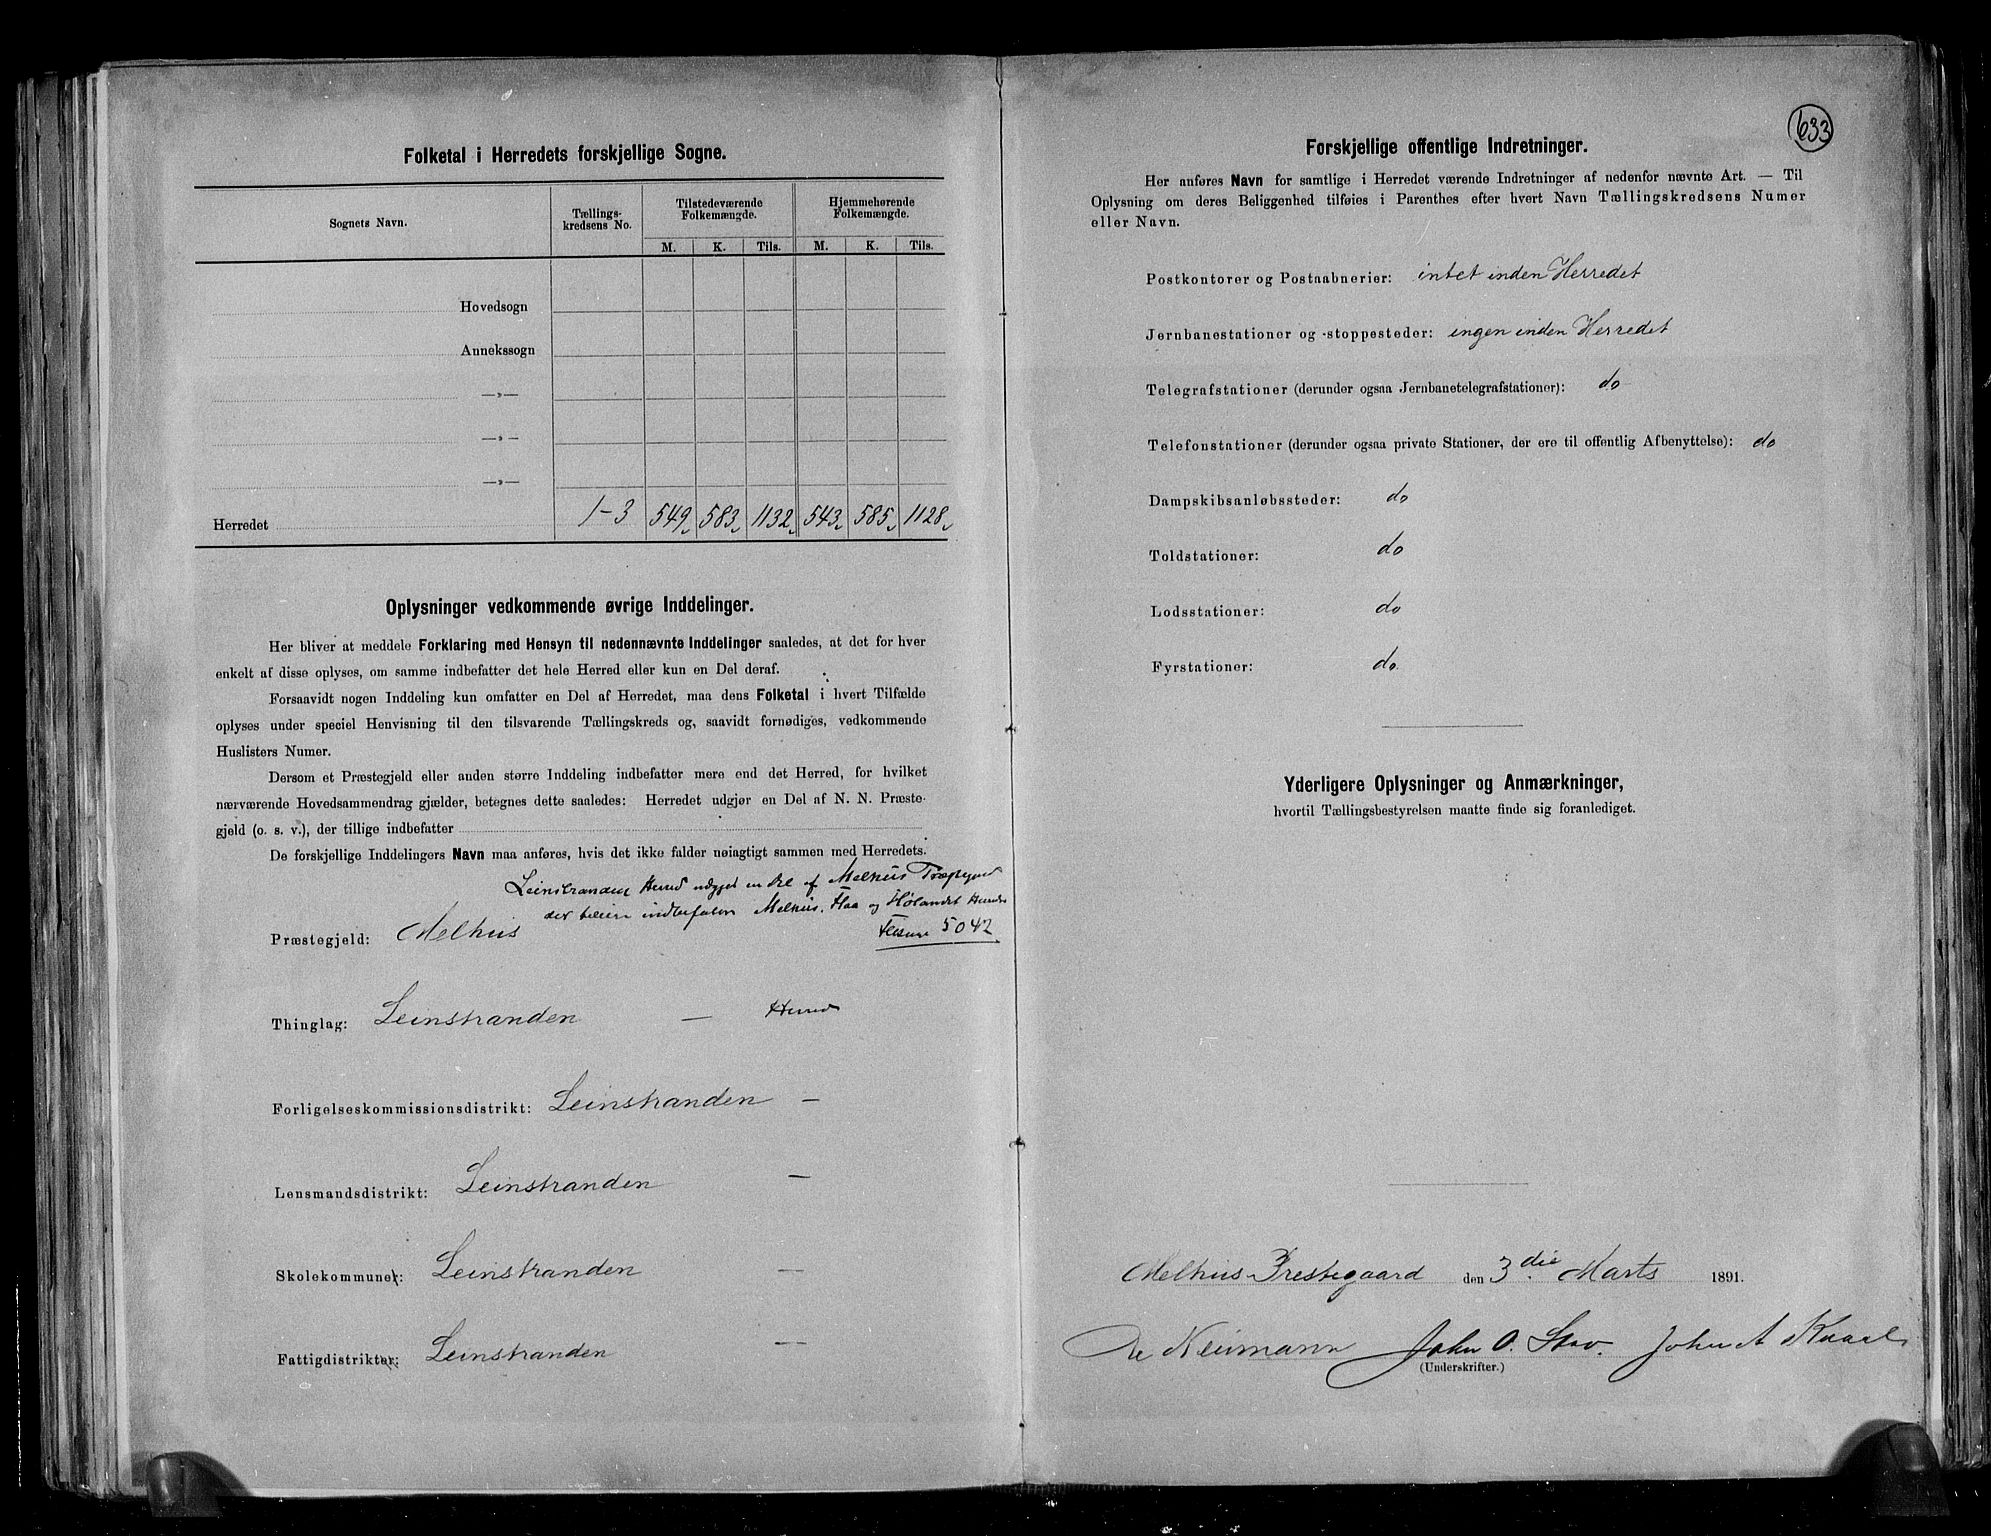 Folketal i Herredets forskjellige Sogne.
Sognets Navn. Tællings-kredsens No. Tilstedeværende Folkemængde. Hjemmehørende Folkemængde.
M. K. Tils. M. K. Tils.
Hovedsogn
Annekssogn
—»—
—»—
—»—
Herredet 1-3 549 583 1132 543 585 1128
Oplysninger vedkommende øvrige Inddelinger.
Her bliver at meddele Forklaring med Hensyn til nedennævnte Inddelinger saaledes, at det for hver
enkelt af disse oplyses, om samme indbefatter det hele Herred eller kun en Del deraf.
Forsaavidt nogen Inddeling kun omfatter en Del af Herredet, maa dens Folketal i hvert Tilfælde
oplyses under speciel Henvisning til den tilsvarende Tællingskreds og, saavidt fornødiges, vedkommende
Huslisters Numer.
Dersom et Præstegjeld eller anden større Inddeling indbefatter mere end det Herred, for hvilket
nærværende Hovedsammendrag gjælder, betegnes dette saaledes: Herredet udgjør en Del af N. N. Præste-
gjeld (o. s. v.), der tillige indbefatter
De forskjellige Inddelingers Navn maa anføres, hvis det ikke falder nøiagtigt sammen med Herredets.
Leinstrandens Herred udgjør en Del af Melhus
der indbefatter Melhus, Flaa og Hølandet
Præstegjeld: Melhus 5042
Thinglag: Leinstranden — Herred
Forligelseskommissionsdistrikt: Leinstranden —
Lensmandsdistrikt: Leinstranden —
Skolekommuner: Leinstranden —
Fattigdistrikter: Leinstranden —
633
Forskjellige offentlige Indretninger.
Her anføres Navn for samtlige i Herredet værende Indretninger af nedenfor nævnte Art. — Til
Oplysning om deres Beliggenhed tilføies i Parenthes efter hvert Navn Tællingskredsens Numer
eller Navn.
Postkontorer og Postaabnerier: intet inden Herredet
Jernbanestationer og -stoppesteder: ingen inden Herredet
Telegrafstationer (derunder ogsaa Jernbanetelegrafstationer): do
Telefonstationer (derunder ogsaa private Stationer, der ere til offentlig Afbenyttelse): do
Dampskibsanløbssteder: do
Toldstationer: do
Lodsstationer: do
Fyrstationer: do.
Yderligere Oplysninger og Anmærkninger,
hvortil Tællingsbestyrelsen maatte finde sig foranlediget.
Melhus Prestegaard den 3die Marts 1891.
Neumann John O. Stav.
(Underskrifter.)